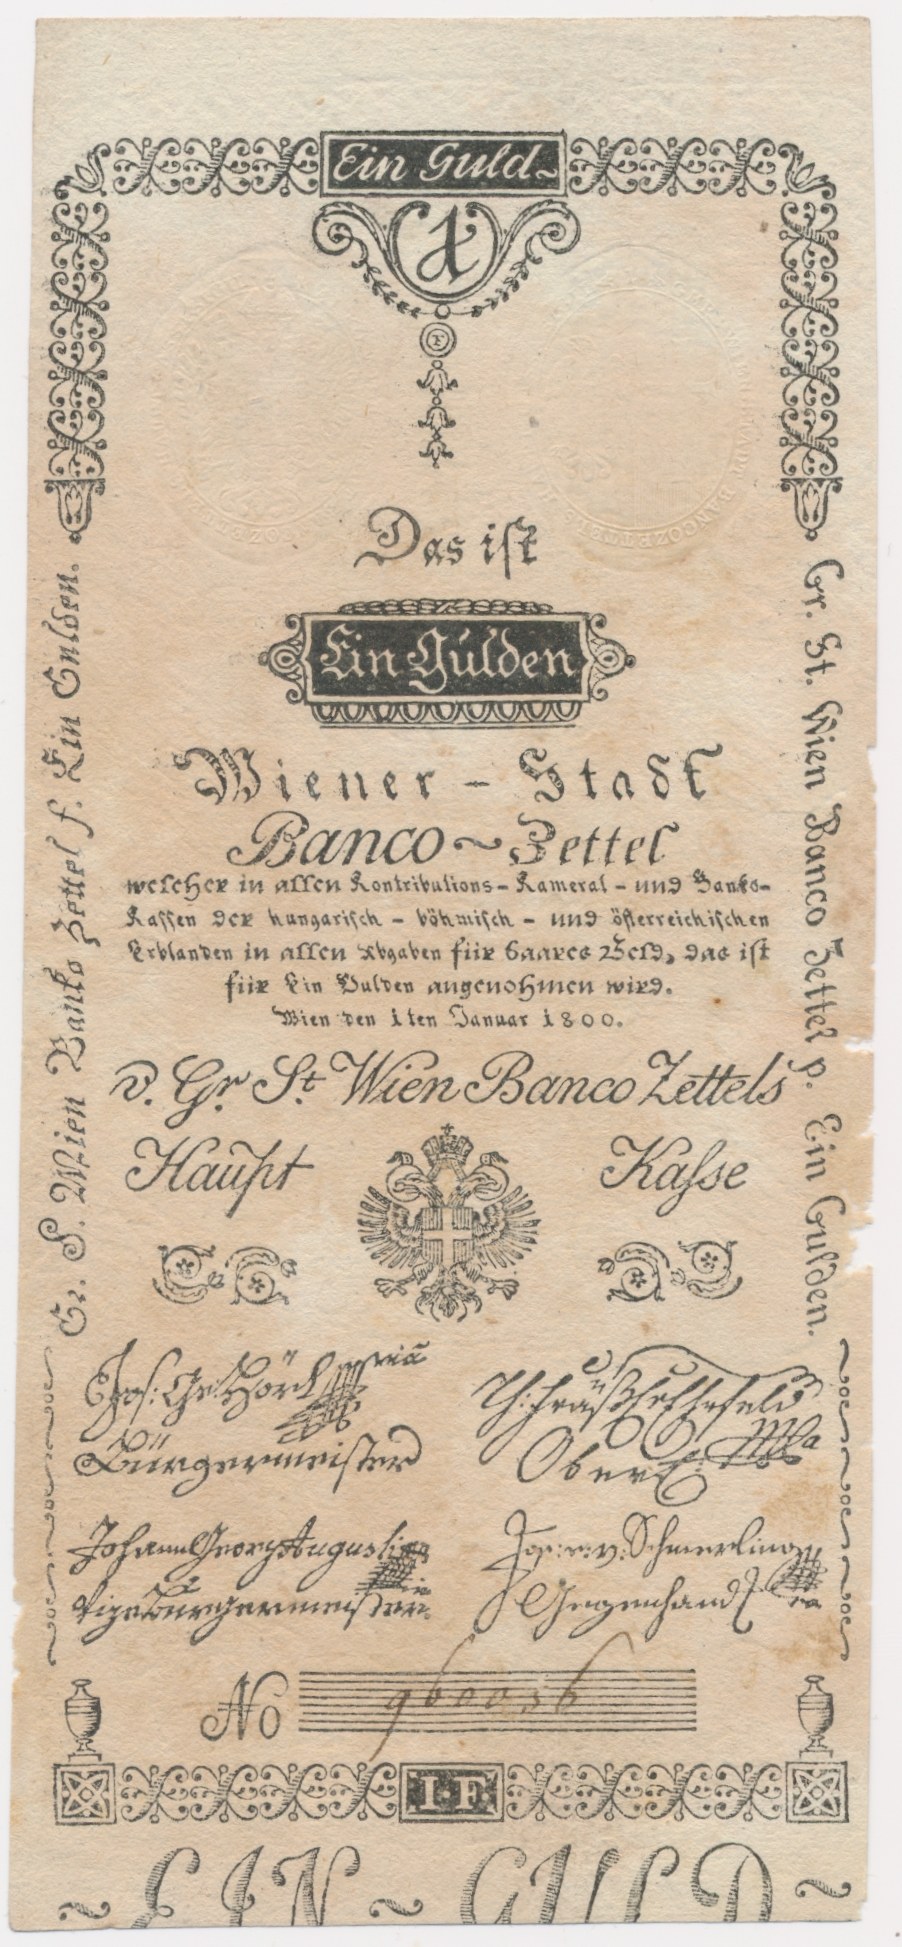 Ein Guld~
1
Das ist
Ein Gulden
Wiener - Stadt
Banco ~ Zettel
welcher in allen Kontributions - Kameral - und Banko-
Kassen der hungarisch - böhmisch - und österreichischen
Erblanden in allen Abgaben für baares Geld, das ist
für Ein Gulden angenohmen wird.
Wien den 1ten Januar 1800.
v. Gr. St. Wien Banco Zettels
Haupt Kasse
Gr. S. Wien Banko Zettel f. Ein Gulden.
Gr. St. Wien Banco Zettel p. Ein Gulden.
Jos: Ge: Hörl
Bürgermeister
Johann Georg Augustin
Vizebürgermeister
Jos: v: Schmerling
Gegenhand
No 960036
I.F.
~ EIN ~ GULD ~